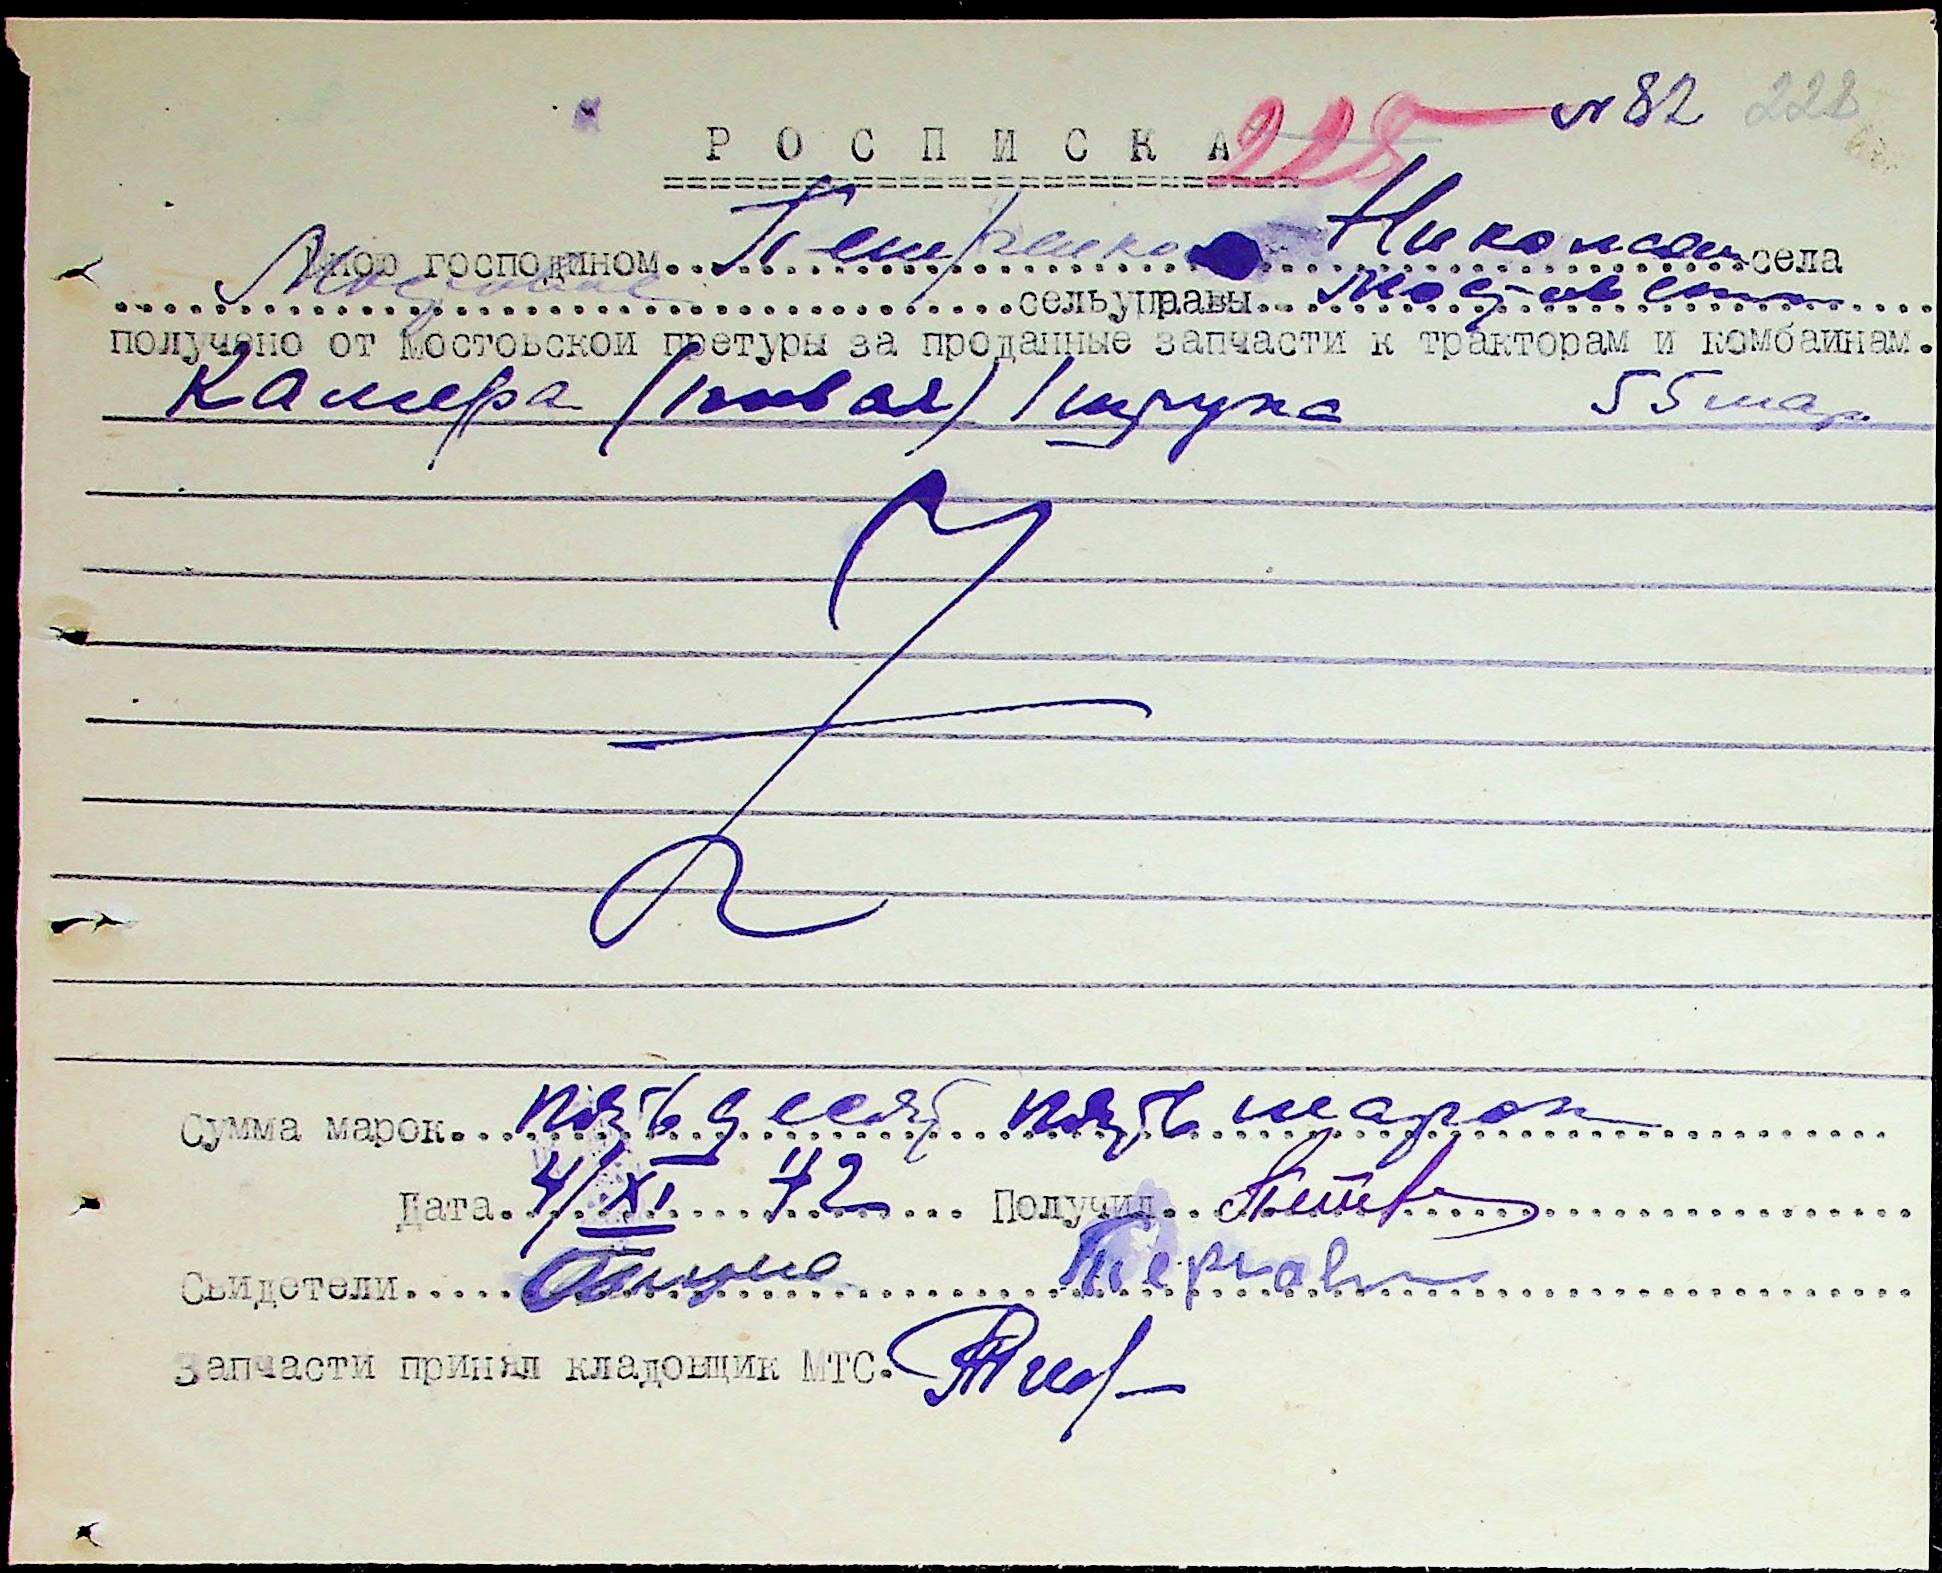 № 82 228
Р О С П И С К А 228
Мною господином Петренко Николаем села
Мостовое сельуправы Мостовской
получено от Мостовской претуры за проданные запчасти к тракторам и комбайнам.
Камера (новая) 1 штука 55 мар.
Сумма марок пятьдесят пять марок
Дата 4/XI 42 Получил
Свидетели
Запчасти принял кладовщик МТС.